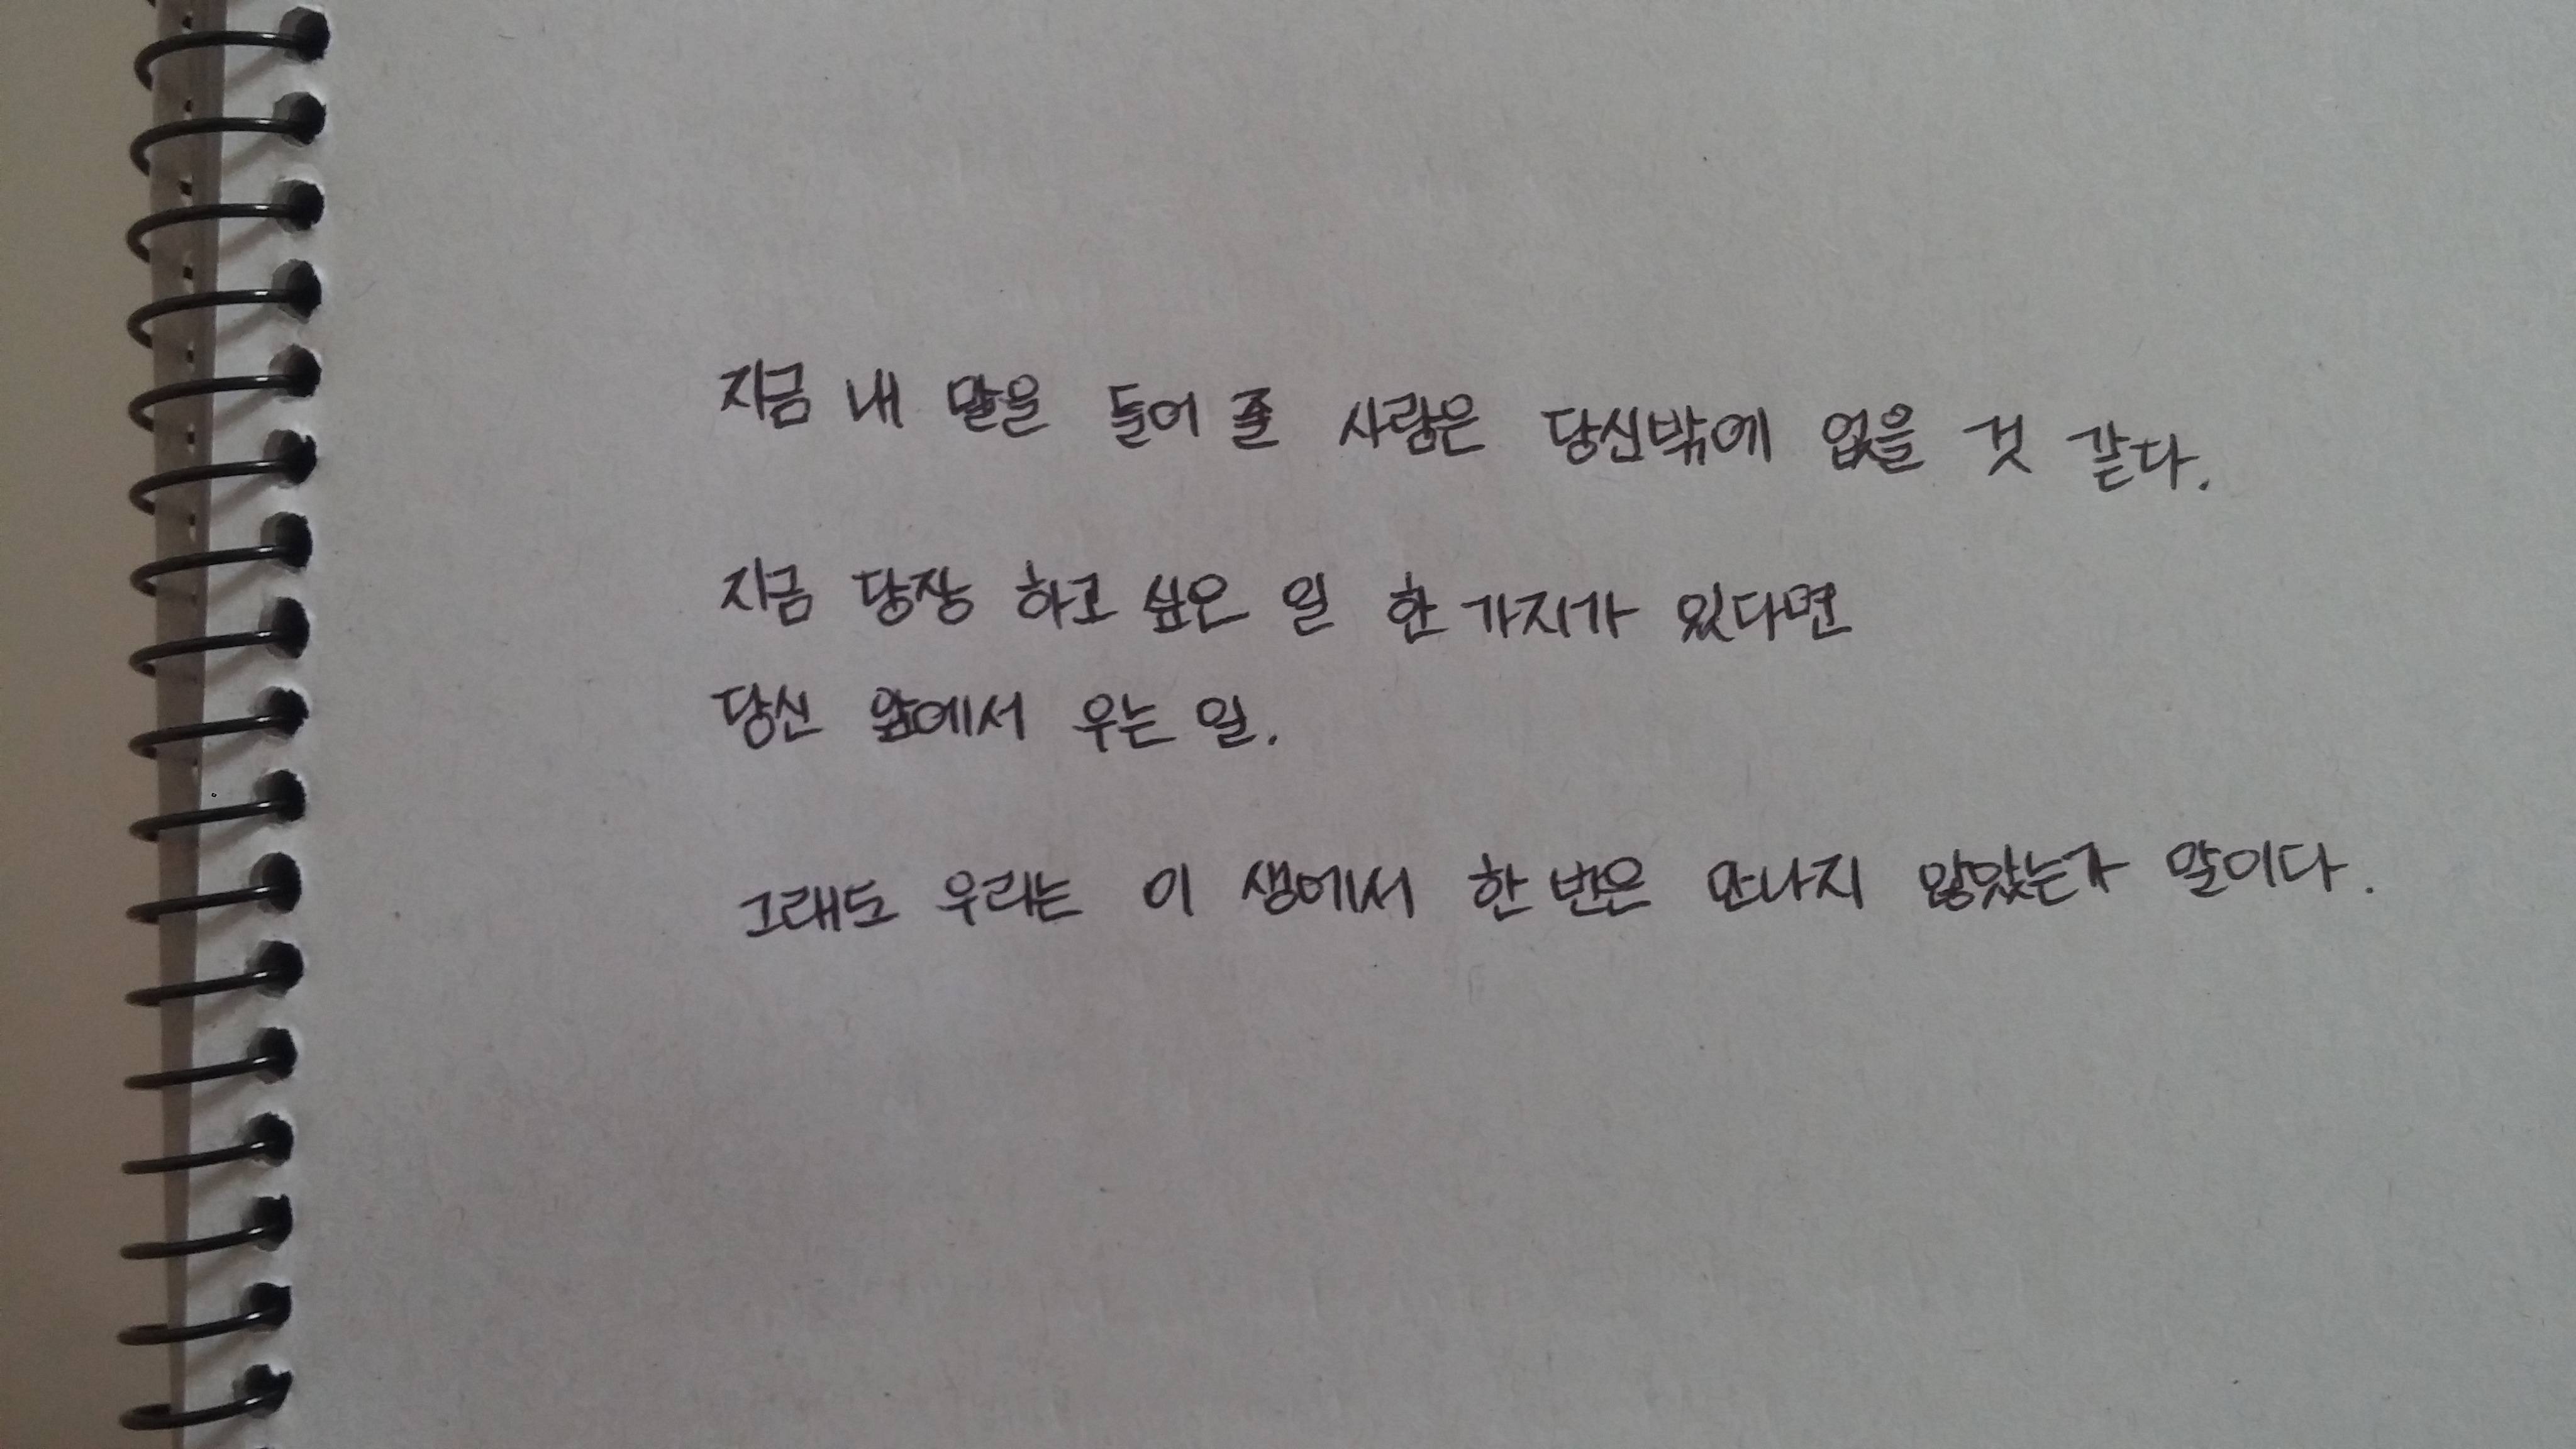 지금 내 말을 들어 줄 사람은 당신밖에 없을 것 같다.
지금 당장 하고 싶은 일 한 가지가 있다면
당신 앞에서 우는 일.
그래도 우리는 이 생에서 한 번은 만나지 않았는가 말이다.